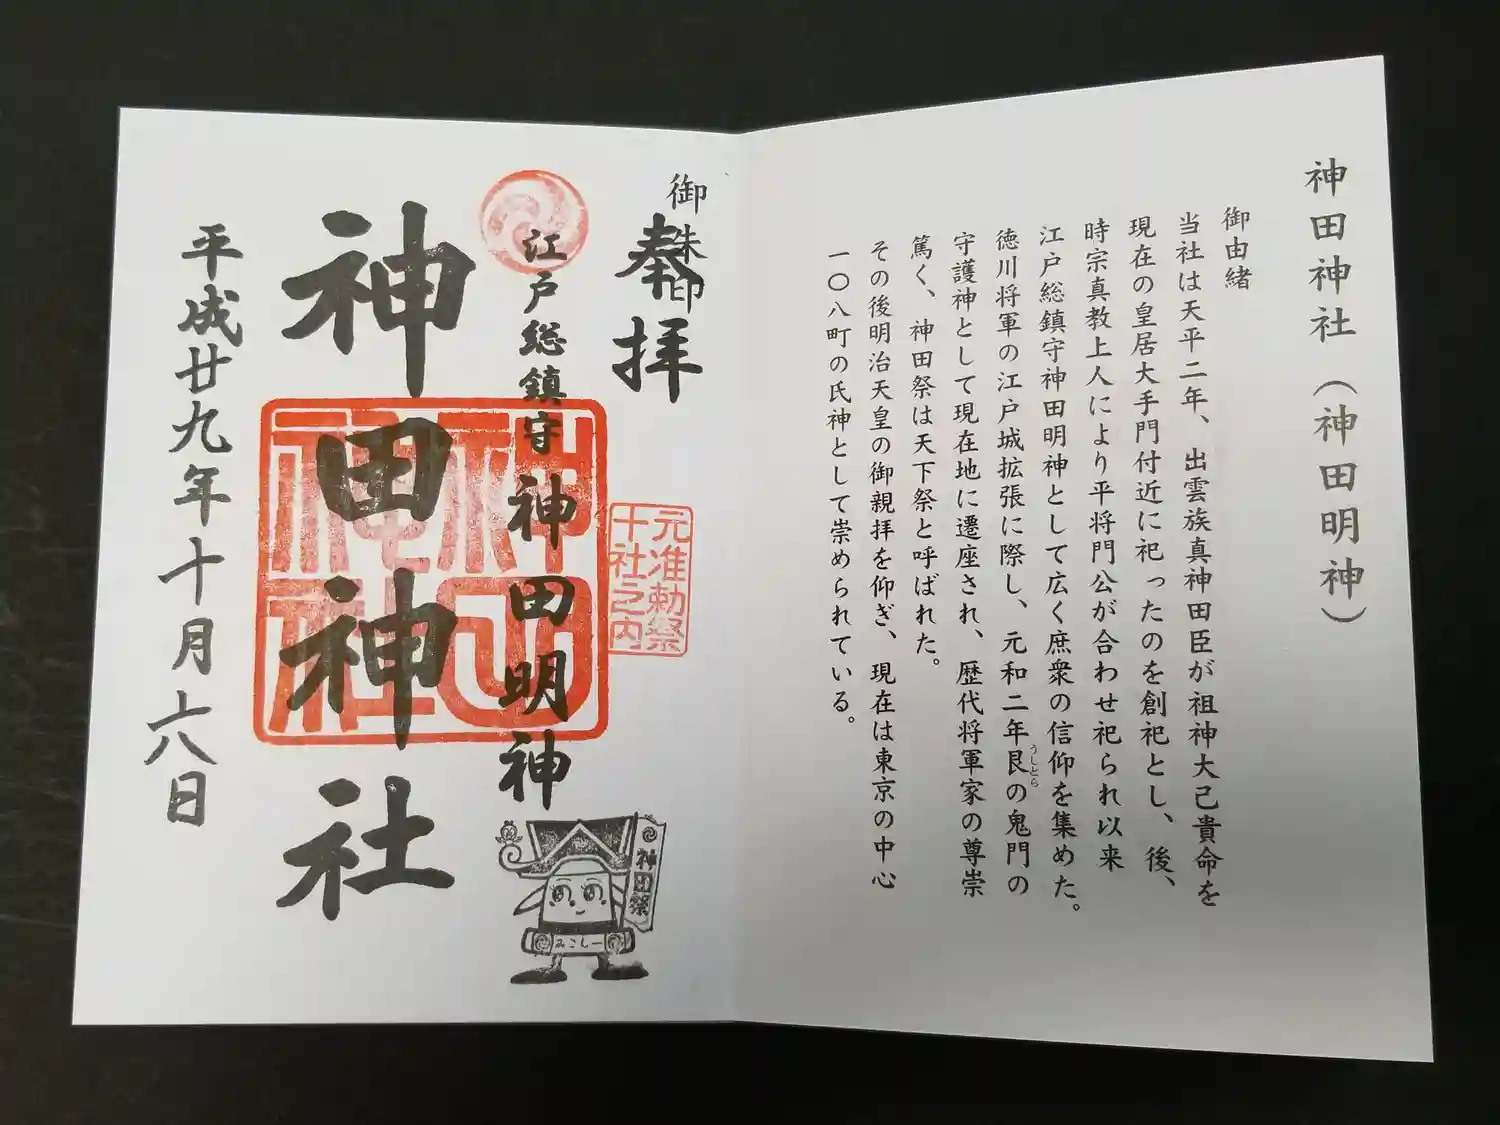 神田神社（神田明神）
御由緒
当社は天平二年、出雲族真神田臣が祖神大己貴命を
現在の皇居大手門付近に祀ったのを創祀とし、後、
時宗真教上人により平将門公が合わせ祀られ以来
江戸総鎮守神田明神として広く庶衆の信仰を集めた。
徳川将軍の江戸城拡張に際し、元和二年艮の鬼門の
うしとら
守護神として現在地に遷座され、歴代将軍家の尊崇
篤く、神田祭は天下祭と呼ばれた。
その後明治天皇の御親拝を仰ぎ、現在は東京の中心
一〇八町の氏神として崇められている。
御朱印
奉拝
元准勅祭
十社之内
江戸総鎮守 神田明神
神田神社
神田神社
平成廿九年十月六日
神田祭
みこしー